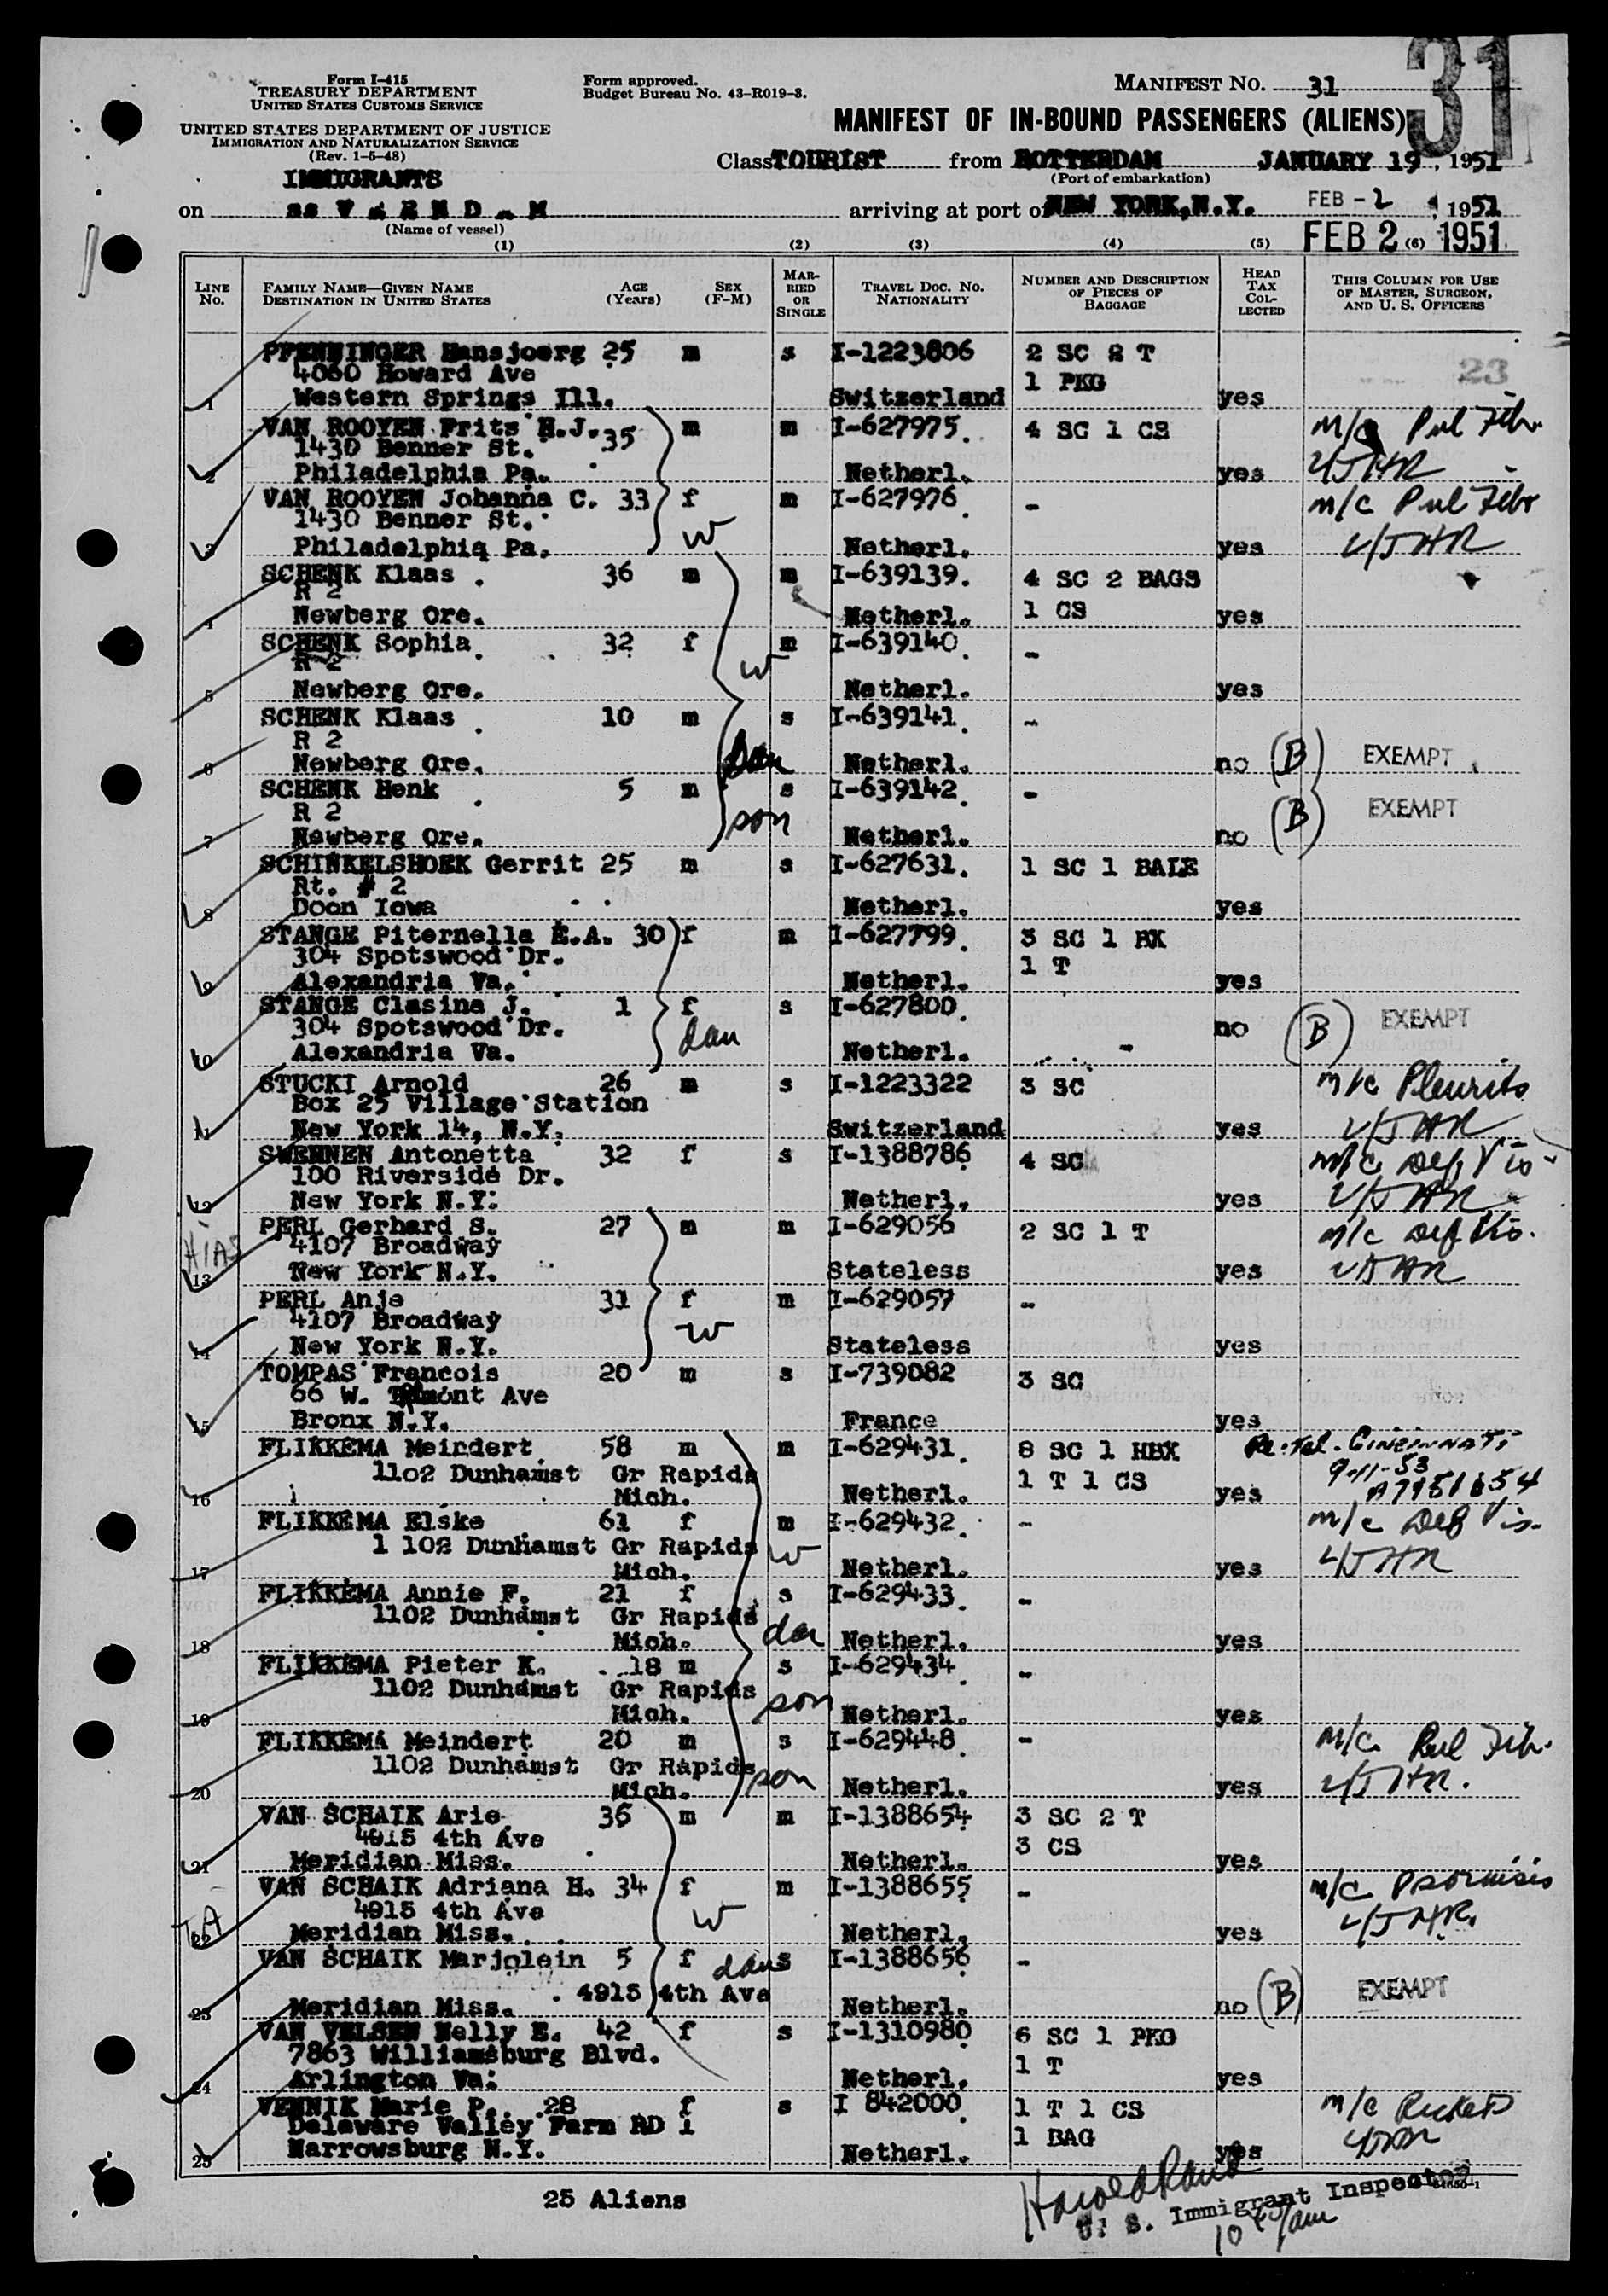 Form I-415
TREASURY DEPARTMENT
UNITED STATES CUSTOMS SERVICE
UNITED STATES DEPARTMENT OF JUSTICE
IMMIGRATION AND NATURALIZATION SERVICE
(Rev. 1-5-48)
Form approved.
Budget Bureau No. 43-R019-3.
MANIFEST NO. 31
31
MANIFEST OF IN-BOUND PASSENGERS (ALIENS)
Class TOURIST from ROTTERDAM JANUARY 19, 1951
(Port of embarkation)
IMMIGRANTS
on ss V E E N D A M arriving at port of NEW YORK, N.Y. FEB - 2, 1951
(Name of vessel)
FEB 2 1951
(1) (2) (3) (4) (5) (6)
LINE No. FAMILY NAME—GIVEN NAME DESTINATION IN UNITED STATES AGE (Years) SEX (F-M) MARRIED OR SINGLE TRAVEL DOC. NO. NATIONALITY NUMBER AND DESCRIPTION OF PIECES OF BAGGAGE HEAD TAX COLLECTED THIS COLUMN FOR USE OF MASTER, SURGEON, AND U. S. OFFICERS
PFENNINGER Hansjoerg 25 m s I-1223806 2 SC 2 T
4060 Howard Ave 1 PKG 23
1 Western Springs Ill. Switzerland yes
VAN ROOYEN Frits H.J. 35 m m I-627975. 4 SC 1 CS m/c Pul Fibr.
1430 Benner St.
2 Philadelphia Pa. Netherl. yes
VAN ROOYEN Johanna C. 33 f m I-627976. - m/c Pul Fibr
1430 Benner St. w
3 Philadelphia Pa. Netherl. yes
SCHENK Klaas 36 m m I-639139. 4 SC 2 BAGS
R 2 1 CS
4 Newberg Ore. Netherl. yes
SCHENK Sophia 32 f m I-639140. -
R 2 w
5 Newberg Ore. Netherl. yes
SCHENK Klaas 10 m s I-639141. -
R 2
6 Newberg Ore. Netherl. no (B) EXEMPT
SCHENK Henk 5 m s I-639142. -
R 2 son
7 Newberg Ore. Netherl. no (B) EXEMPT
SCHINKELSHOEK Gerrit 25 m s I-627631. 1 SC 1 BALE
Rt. # 2
8 Doon Iowa Netherl. yes
STANGE Piternella E.A. 30 f m I-627799. 3 SC 1 BX
304 Spotswood Dr. 1 T
9 Alexandria Va. Netherl. yes
STANGE Clasina J. 1 f s I-627800.
304 Spotswood Dr. dau no (B) EXEMPT
10 Alexandria Va. Netherl. -
STUCKI Arnold 26 m s I-1223322 3 SC m/c Pleurits
Box 25 Village Station
11 New York 14, N.Y. Switzerland yes
SWENNEN Antonetta 32 f s I-1388786 4 SC m/c Def Vis-
100 Riverside Dr.
12 New York N.Y. Netherl. yes
PERL Gerhard S. 27 m m I-629056 2 SC 1 T m/c Def Vis.
HIAS 4107 Broadway
13 New York N.Y. Stateless yes
PERL Anje 31 f m I-629057 -
4107 Broadway w
14 New York N.Y. Stateless yes
TOMPAS Francois 20 m s I-739082 3 SC
66 W. Tremont Ave
15 Bronx N.Y. France yes
FLIKKEMA Meindert 58 m m I-629431. 8 SC 1 HBX Re: Tel. CINCINNATI
1102 Dunhamst Gr Rapids 1 T 1 CS 9-11-53
16 Mich. Netherl. yes A7951654
FLIKKEMA Elske 61 f m I-629432. - m/c Def Vis-
1 102 Dunhamst Gr Rapids w
17 Mich. Netherl. yes
FLIKKEMA Annie F. 21 f s I-629433. -
1102 Dunhamst Gr Rapids dau
18 Mich. Netherl. yes
FLIKKEMA Pieter K. 18 m s I-629434. -
1102 Dunhamst Gr Rapids son
19 Mich. Netherl. yes
FLIKKEMA Meindert 20 m s I-629448. - m/c Pul Fib.
1102 Dunhamst Gr Rapids son
20 Mich. Netherl. yes
VAN SCHAIK Arie 36 m m I-1388654 3 SC 2 T
4915 4th Ave 3 CS
21 Meridian Miss. Netherl. yes
VAN SCHAIK Adriana H. 34 f m I-1388655 - m/c Psoriasis
4915 4th Ave w
22 Meridian Miss. Netherl. yes
VAN SCHAIK Marjolein 5 f dau s I-1388656 -
4915 4th Ave
23 Meridian Miss. Netherl. no (B) EXEMPT
VAN VELSEN Nelly E. 42 f s I-1310980 6 SC 1 PKG
7863 Williamsburg Blvd. 1 T
24 Arlington Va. Netherl. yes
VENNIK Marie P. 28 f s I 842000. 1 T 1 CS m/c Rickets
Delaware Valley Farm RD 1 1 BAG
25 Narrowsburg N.Y. Netherl. yes
25 Aliens
U. S. Immigrant Inspector